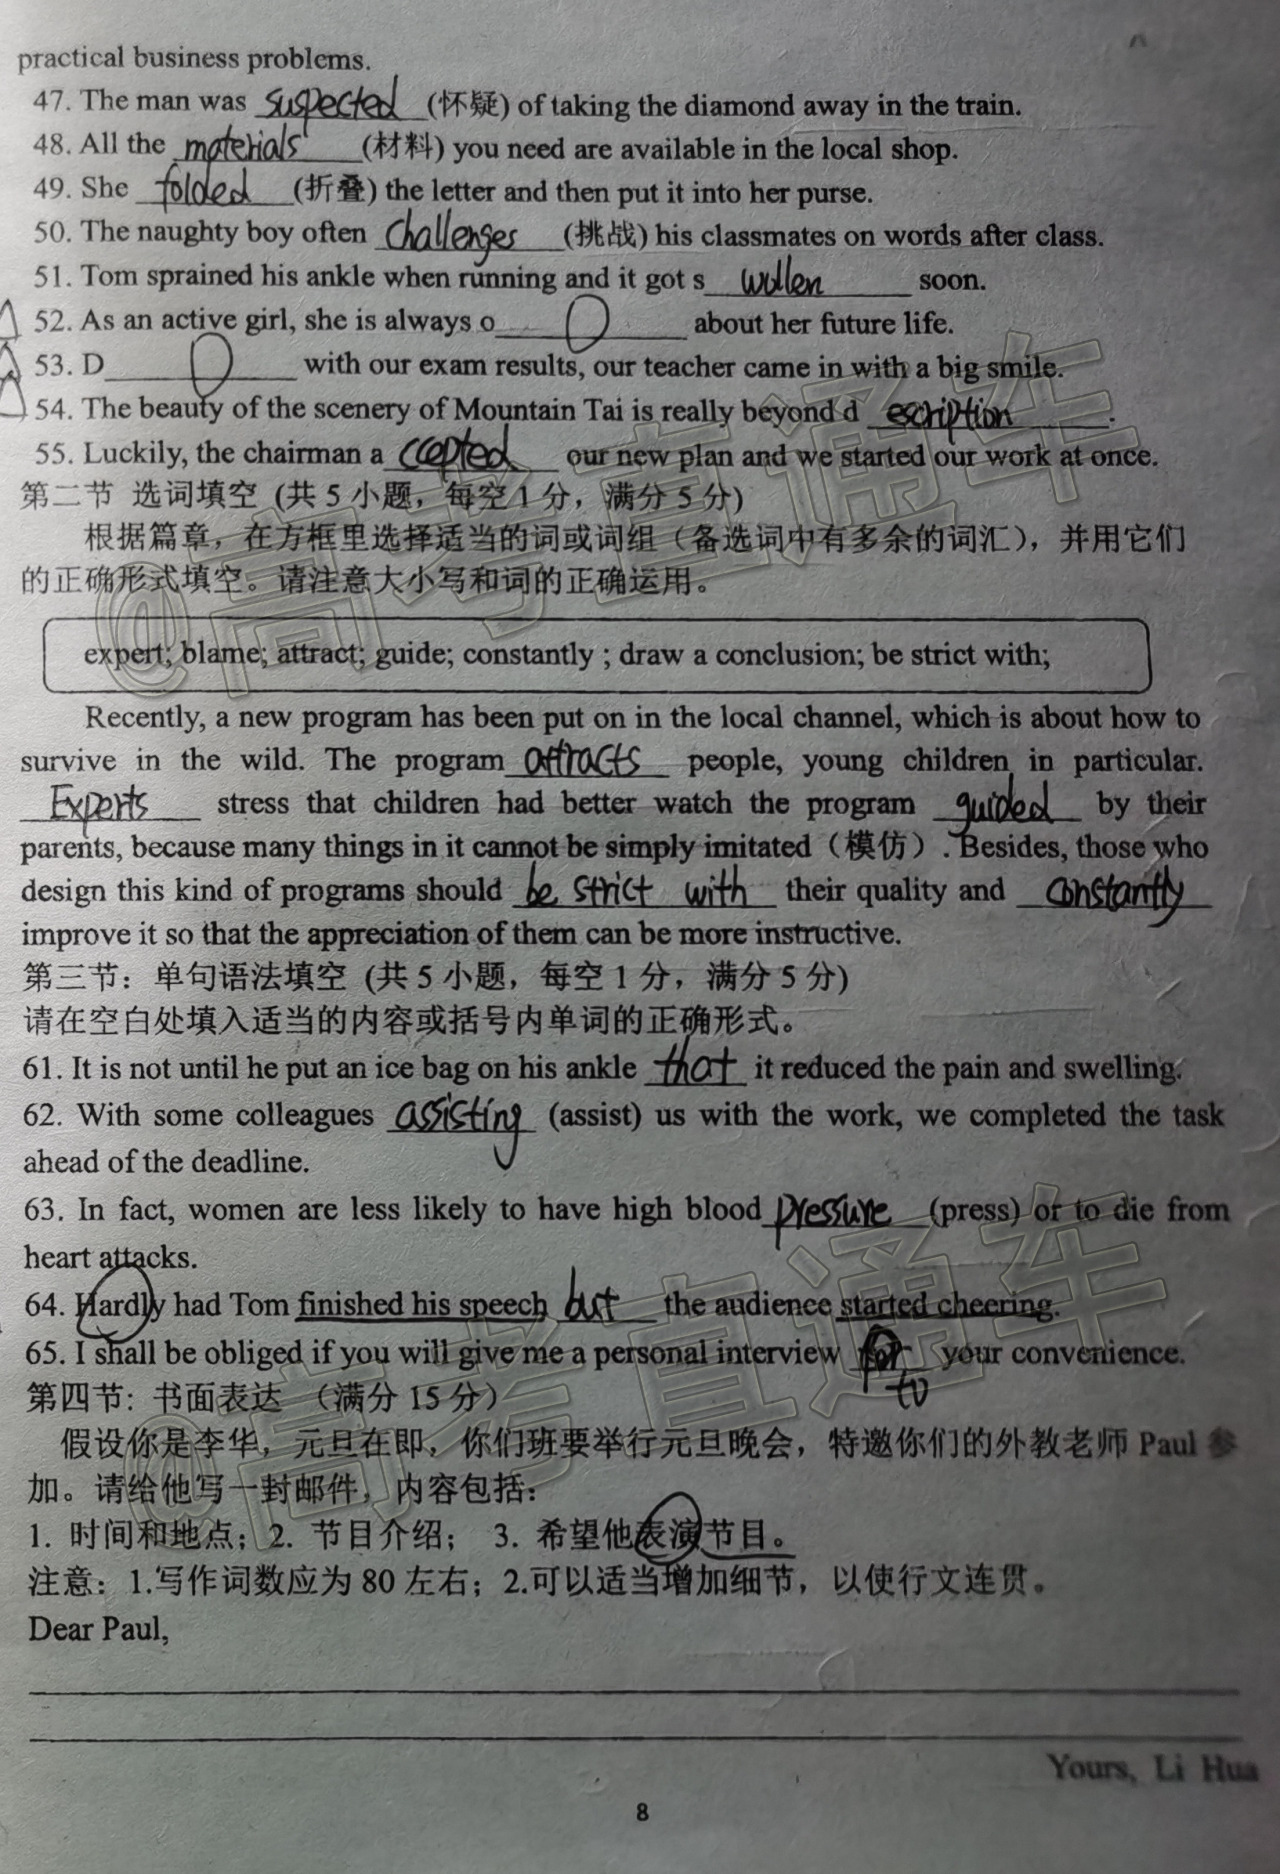 practical business problems.
47. The man was suspected (怀疑) of taking the diamond away in the train.
48. All the materials (材料) you need are available in the local shop.
49. She folded (折叠) the letter and then put it into her purse.
50. The naughty boy often challenges (挑战) his classmates on words after class.
51. Tom sprained his ankle when running and it got s wollen soon.
52. As an active girl, she is always o________ about her future life.
53. D________ with our exam results, our teacher came in with a big smile.
54. The beauty of the scenery of Mountain Tai is really beyond d escription.
55. Luckily, the chairman a ccepted our new plan and we started our work at once.
第二节 选词填空 (共 5 小题，每空 1 分，满分 5 分)
根据篇章，在方框里选择适当的词或词组（备选词中有多余的词汇），并用它们
的正确形式填空。请注意大小写和词的正确运用。
expert; blame; attract; guide; constantly ; draw a conclusion; be strict with;
Recently, a new program has been put on in the local channel, which is about how to
survive in the wild. The program attracts people, young children in particular.
Experts stress that children had better watch the program guided by their
parents, because many things in it cannot be simply imitated（模仿）. Besides, those who
design this kind of programs should be strict with their quality and constantly
improve it so that the appreciation of them can be more instructive.
第三节：单句语法填空 (共 5 小题，每空 1 分，满分 5 分)
请在空白处填入适当的内容或括号内单词的正确形式。
61. It is not until he put an ice bag on his ankle that it reduced the pain and swelling.
62. With some colleagues assisting (assist) us with the work, we completed the task
ahead of the deadline.
63. In fact, women are less likely to have high blood pressure (press) or to die from
heart attacks.
64. Hardly had Tom finished his speech but the audience started cheering.
65. I shall be obliged if you will give me a personal interview for your convenience.
to
第四节: 书面表达 （满分 15 分）
假设你是李华，元旦在即，你们班要举行元旦晚会，特邀你们的外教老师 Paul 参
加。请给他写一封邮件，内容包括：
1. 时间和地点；2. 节目介绍； 3. 希望他表演节目。
注意：1.写作词数应为 80 左右；2.可以适当增加细节，以使行文连贯。
Dear Paul,
Yours, Li Hua
8
@高考直通车
@高考直通车